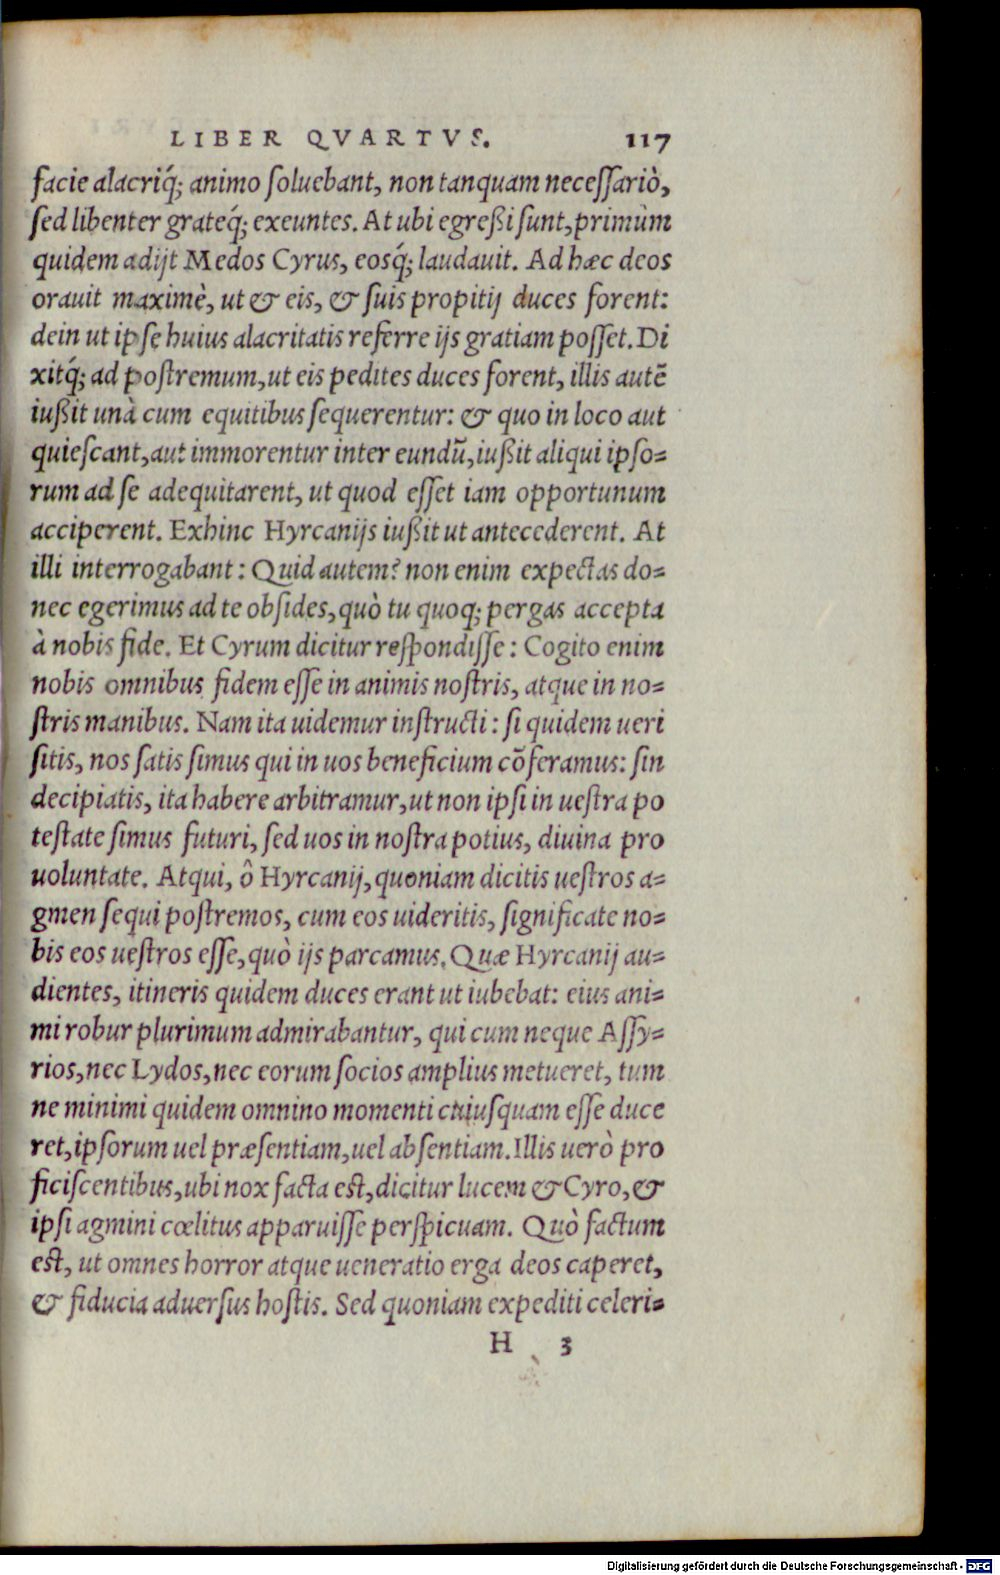 LIBER QVARTVS. 117
facie alacriq́; animo ſoluebant, non tanquam neceſſariò,
ſed libenter grateq́; exeuntes. At ubi egreßi ſunt, primùm
quidem adijt Medos Cyrus, eosq́; laudauit. Ad hæc deos
orauit maximè, ut & eis, & ſuis propitij duces forent:
dein ut ipſe huius alacritatis referre ijs gratiam poſſet. Di
xitq́; ad poſtremum, ut eis pedites duces forent, illis autẽ
iußit unà cum equitibus ſequerentur: & quo in loco aut
quieſcant, aut immorentur inter eundũ, iußit aliqui ipſo=
rum ad ſe adequitarent, ut quod eſſet iam opportunum
acciperent. Exhinc Hyrcanijs iußit ut antecederent. At
illi interrogabant: Quid autem? non enim expectas do=
nec egerimus ad te obſides, quò tu quoq; pergas accepta
à nobis fide. Et Cyrum dicitur reſpondiſſe: Cogito enim
nobis omnibus fidem eſſe in animis noſtris, atque in no=
ſtris manibus. Nam ita uidemur inſtructi: ſi quidem ueri
ſitis, nos ſatis ſimus qui in uos beneficium cõferamus: ſin
decipiatis, ita habere arbitramur, ut non ipſi in ueſtra po
teſtate ſimus futuri, ſed uos in noſtra potius, diuina pro
uoluntate. Atqui, ô Hyrcanij, quoniam dicitis ueſtros a=
gmen ſequi poſtremos, cum eos uideritis, ſignificate no=
bis eos ueſtros eſſe, quò ijs parcamus. Quæ Hyrcanij au=
dientes, itineris quidem duces erant ut iubebat: eius ani=
mi robur plurimum admirabantur, qui cum neque Aſſy=
rios, nec Lydos, nec eorum ſocios amplius metueret, tum
ne minimi quidem omnino momenti cuiuſquam eſſe duce
ret, ipſorum uel præſentiam, uel abſentiam. Illis uerò pro
ficiſcentibus, ubi nox facta eſt, dicitur lucem & Cyro, &
ipſi agmini cœlitus apparuiſſe perſpicuam. Quò factum
eſt, ut omnes horror atque ueneratio erga deos caperet,
& fiducia aduerſus hoſtis. Sed quoniam expediti celeri=
H 3
Digitalisierung gefördert durch die Deutsche Forschungsgemeinschaft - DFG